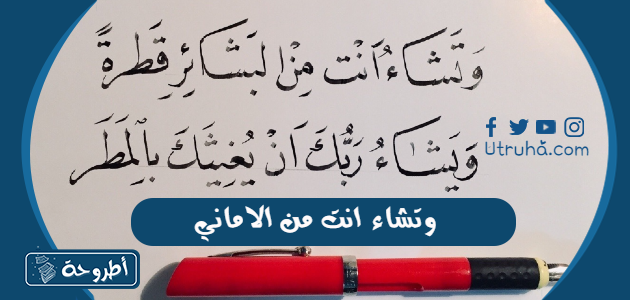 وَتَشَاءُ أَنْتَ مِنَ الْبَشَائِرِ قَطْرَةً
وَيَشَاءُ رَبُّكَ أَنْ يُغِيثَكَ بِالْمَطَرَ
Utruha.com
وتشاء انت من الاماني
أطروحة